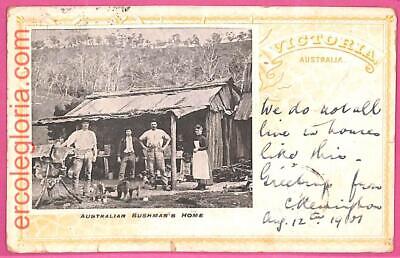 ercolegloria.com
VICTORIA
AUSTRALIA.
We do not all
live in houses
like this.
Greetings from
Aug. 12th 1901
AUSTRALIAN BUSHMAN'S HOME